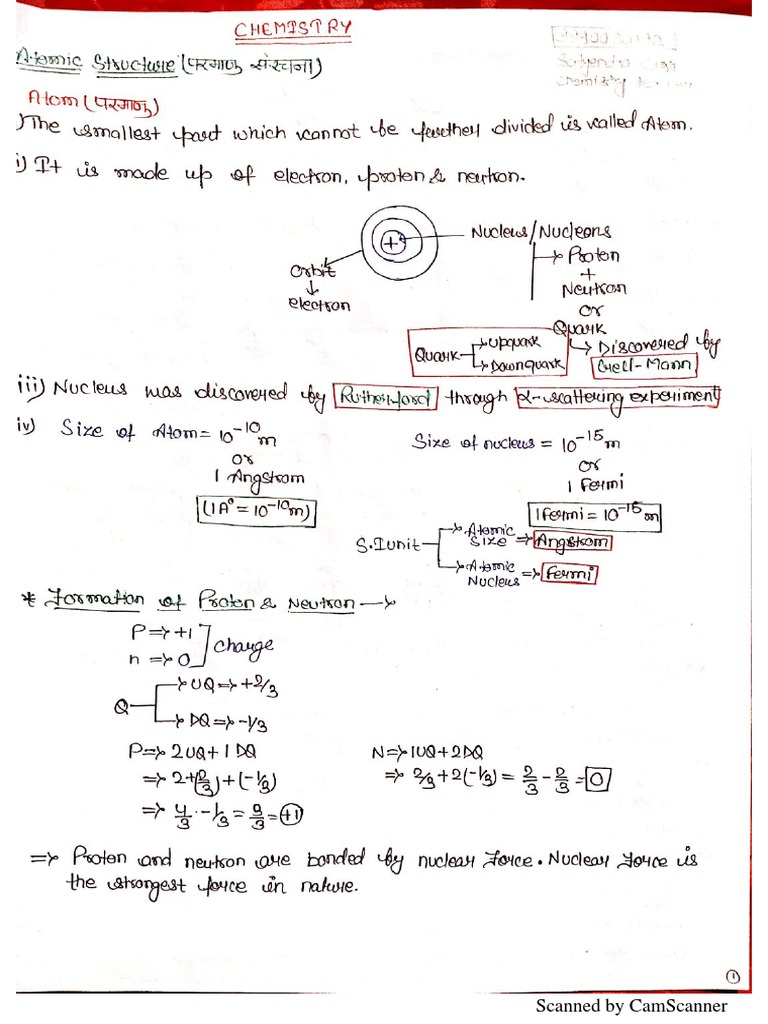 CHEMISTRY
Atomic Structure (परमाणु संरचना)
Atom (परमाणु)
i) The smallest part which cannot be further divided is called Atom.
i) It is made up of electron, proton & neutron.
Nucleus/Nucleons
Proton
+
Neutron
or
Quark
Orbit
↓
electron
Quark
Upquark
Downquark
Discovered by
Gell-Mann
iii) Nucleus was discovered by Rutherford through α-scattering experiment
iv) Size of Atom = 10⁻¹⁰ m
or
1 Angstrom
(1A° = 10⁻¹⁰ m)
Size of nucleus = 10⁻¹⁵ m
or
1 Fermi
1 Fermi = 10⁻¹⁵ m
S.I unit
Atomic Size => Angstrom
Atomic Nucleus => Fermi
* Formation of Proton & Neutron →
P => +1
n => 0
charge
Q
UQ => +2/3
DQ => -1/3
P => 2UQ + 1DQ
=> 2+(2/3) + (-1/3)
=> 4/3 - 1/3 = 3/3 = +1
N => 1UQ + 2DQ
=> 2/3 + 2(-1/3) = 2/3 - 2/3 = 0
=> Proton and neutron are bonded by nuclear force. Nuclear force is
the strongest force in nature.
1
Scanned by CamScanner